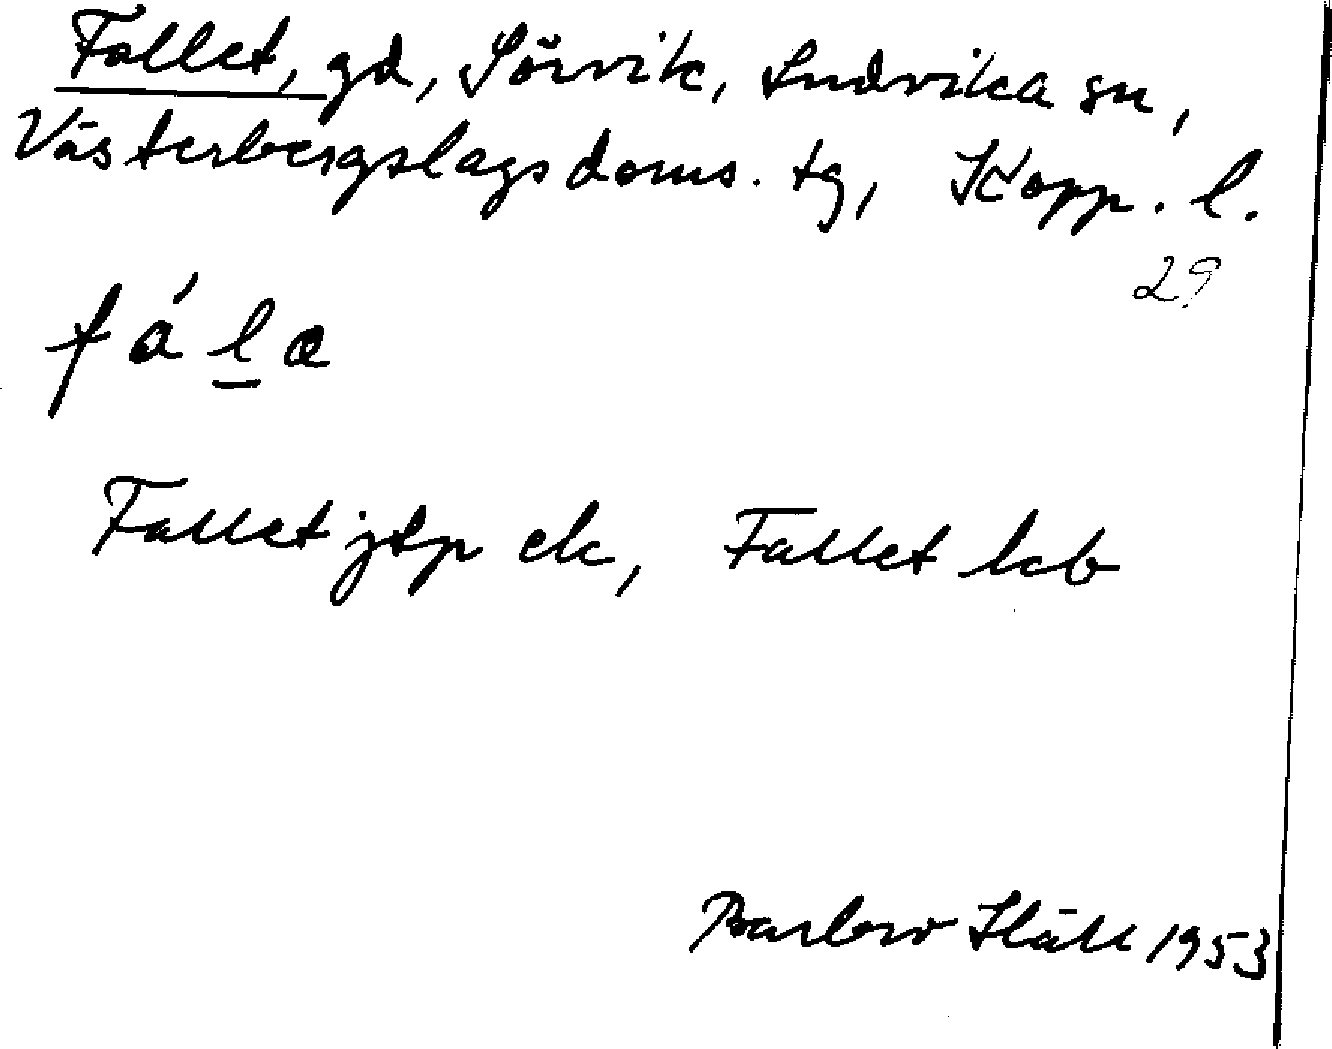 Fallet, gd, Sörvik, Ludvika sn,
Västerbergslags doms. tg, Kopp. l.
29
fála
Fallet jdp ek, Fallet kb
1953